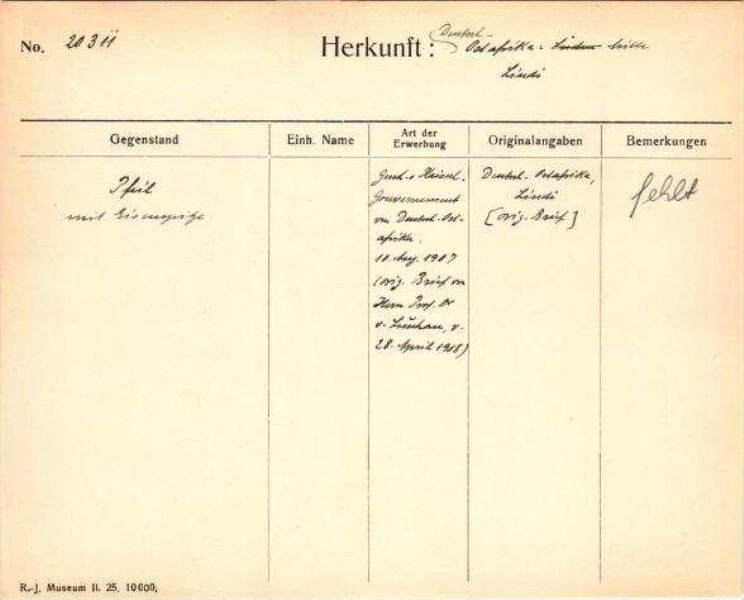 No. 20311
Herkunft: Deutsch-
Ostafrika:
Lindi
Gegenstand
Einh. Name
Art der
Erwerbung
Originalangaben
Bemerkungen
Pfeil
mit Eisenspitze
Gesch. v. Kaiserl.
Gouvernement
von Deutsch-Ost-
afrika.
10. Aug. 1907
(orig. Brief von
Herrn Prof. Dr
v. Luschan, v.
28. April 1908)
Deutsch-Ostafrika,
Lindi
[orig. Brief]
fehlt
R.-J. Museum II. 25. 10000.